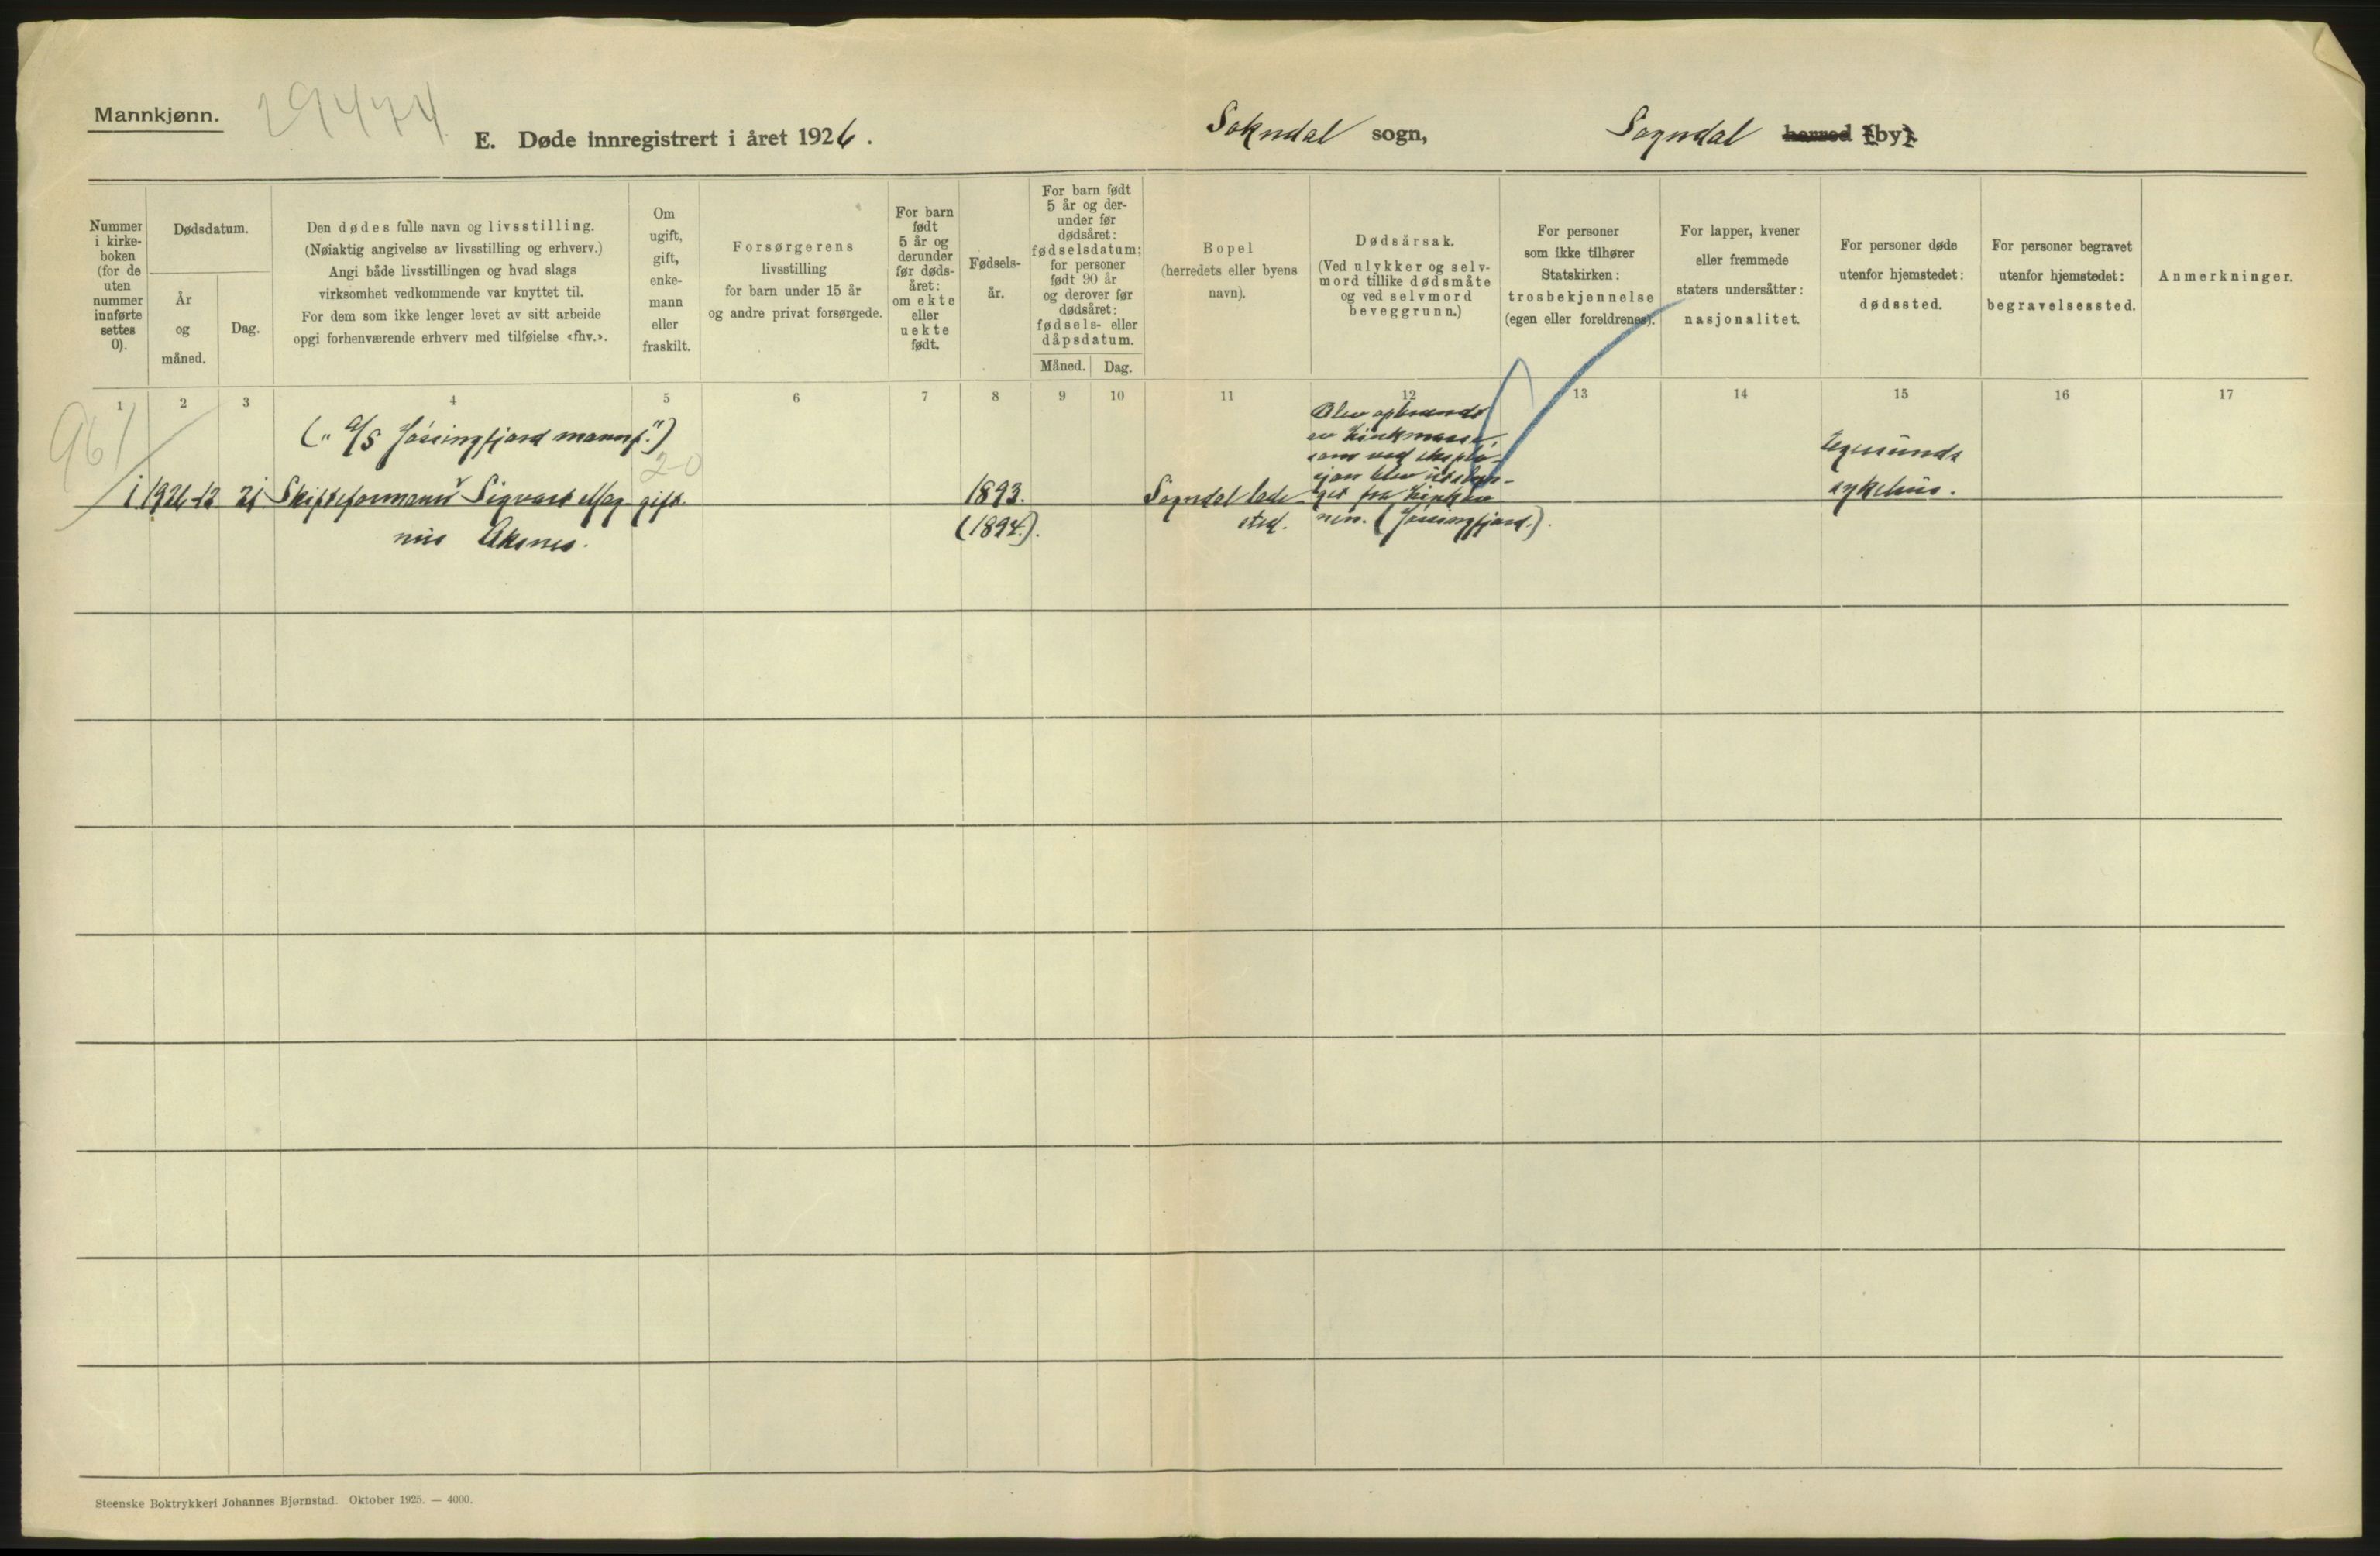 Mannkjønn.
29474
E. Døde innregistrert i året 1926.
Sokndal sogn,
Sogndal herred (by).
Nummer i kirke-boken (for de uten nummer innførte settes 0).
Dødsdatum.
År og måned.
Dag.
Den dødes fulle navn og livsstilling.
(Nøiaktig angivelse av livsstilling og erhverv.)
Angi både livsstillingen og hvad slags
virksomhet vedkommende var knyttet til.
For dem som ikke lenger levet av sitt arbeide
opgi forhenværende erhverv med tilføielse «fhv.».
Om
ugift,
gift,
enke-
mann
eller
fraskilt.
Forsørgerens
livsstilling
for barn under 15 år
og andre privat forsørgede.
For barn
født
5 år og
derunder
før døds-
året:
om ekte
eller
uekte
født.
Fødsels-
år.
For barn født
5 år og der-
under før
dødsåret:
fødselsdatum;
for personer
født 90 år
og derover før
dødsåret:
fødsels- eller
dåpsdatum.
Måned.
Dag.
Bopel
(herredets eller byens
navn).
Dødsårsak.
(Ved ulykker og selv-
mord tillike dødsmåte
og ved selvmord
beveggrunn.)
For personer
som ikke tilhører
Statskirken:
trosbekjennelse
(egen eller foreldrenes).
For lapper, kvener
eller fremmede
staters undersåtter:
nasjonalitet.
For personer døde
utenfor hjemstedet:
dødssted.
For personer begravet
utenfor hjemstedet:
begravelsessted.
Anmerkninger.
1 2 3 4 5 6 7 8 9 10 11 12 13 14 15 16 17
961
("A/S Jøssingfjord manuf.")
20
1 1926-12 21 Skifteformann Sigvart Mag
nus Aksnes.
gift.
1893.
(1894.).
Sogndal lade
sted.
Blev opbrændt
av zinkmasse,
som ved explo-
sjon blev utslyn-
get fra zinkov
nen. (Jøssingfjord.).
Egersunds
sykehus.
Steenske Boktrykkeri Johannes Bjørnstad. Oktober 1925. — 4000.